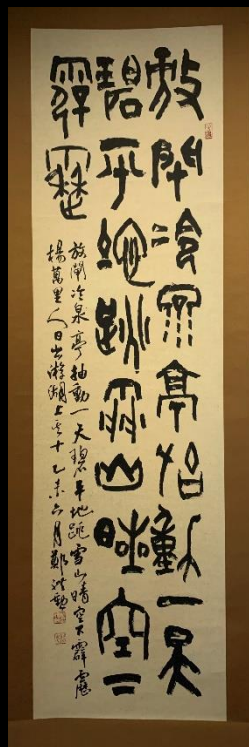 放閘冷泉亭抽動一天
碧平地跳雪山晴空下
霹靂
放閘冷泉亭抽動一天碧平地跳雪山晴空下霹靂
楊萬里人日出游湖上之十乙未六月鄭